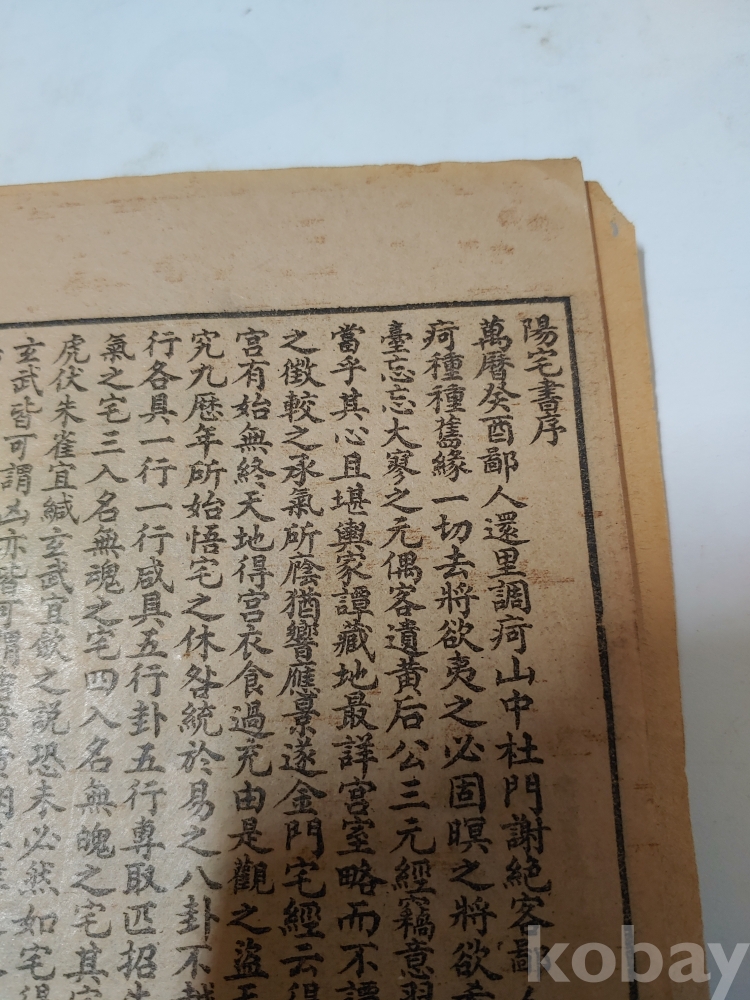 陽宅書序
萬曆癸酉鄙人還里調疴山中杜門謝絕客鄙
疴種種舊緣一切去將欲夷之必固暝之將欲
臺忘忘大寥之元偶客遺黃后公三元經竊意習
當乎其心且堪輿家譚藏地最詳宮室略而不譚
之徵較之承氣所廕猶響應景遂金門宅經云得
宮有始無終天地得宮衣食過充由是觀之盜天
究九歷年所始悟宅之休咎統於易之八卦不越
行各具一行一行咸具五行卦五行專取匹招
氣之宅三入名無魂之宅四入名無魄之宅其
虎伏朱雀宜緘玄武宜斂之說恐未必然如宅得
玄武皆可謂凶亦皆可謂
kobay